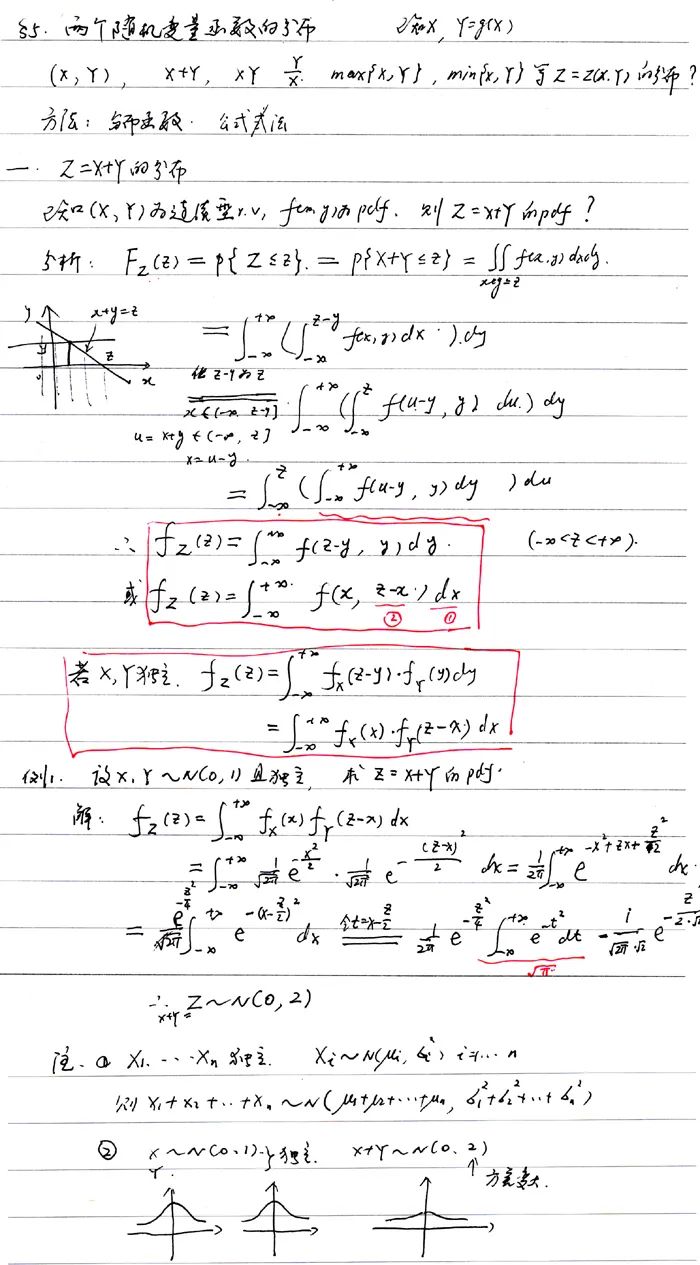 §5. 两个随机变量函数的分布 已知X, Y=g(X)
(X, Y), X+Y, XY Y/X max{X, Y}, min{X, Y} 等 Z=Z(X, Y) 的分布?
方法: 分布函数. 公式法
一. Z=X+Y 的分布
已知(X, Y)为连续型r.v, f(x, y)为pdf. 则 Z=X+Y 的pdf?
分析: F_Z(z) = P{Z≤z} = P{X+Y≤z} = ∬_{x+y≤z} f(x, y) dxdy.
y x+y=z z x
= ∫_{-∞}^{+∞} (∫_{-∞}^{z-y} f(x, y) dx) dy
化 z-y 为 z
x∈(-∞, z-y] ∫_{-∞}^{+∞} (∫_{-∞}^{z} f(u-y, y) du) dy
u=x+y∈(-∞, z]
x=u-y
= ∫_{-∞}^{z} (∫_{-∞}^{+∞} f(u-y, y) dy) du
∴ f_Z(z) = ∫_{-∞}^{+∞} f(z-y, y) dy. (-∞<z<+∞).
或 f_Z(z) = ∫_{-∞}^{+∞} f(x, z-x) dx
② ①
若 X, Y 独立. f_Z(z) = ∫_{-∞}^{+∞} f_X(z-y)·f_Y(y) dy
= ∫_{-∞}^{+∞} f_X(x)·f_Y(z-x) dx
例1. 设 X, Y ~ N(0, 1) 且独立, 求 Z=X+Y 的pdf.
解: f_Z(z) = ∫_{-∞}^{+∞} f_X(x) f_Y(z-x) dx
= ∫_{-∞}^{+∞} 1/√2π e^{-x²/2} · 1/√2π e^{-(z-x)²/2} dx = 1/2π ∫_{-∞}^{+∞} e^{-x²+zx+z²/2} dx.
= e^{-z²/4}/2π ∫_{-∞}^{+∞} e^{-(x-z/2)²} dx 令t=x-z/2 1/2π e^{-z²/4} ∫_{-∞}^{+∞} e^{-t²} dt = 1/(√2π·√2) e^{-z²/2·2}
√π
∴ X+Y = Z ~ N(0, 2)
注. ① X₁. ···· Xₙ 独立. Xᵢ ~ N(μᵢ, σᵢ²) i=1··· n
则 X₁+X₂+··+Xₙ ~ N(μ₁+μ₂+···+μₙ, σ₁²+σ₂²+··+σₙ²)
② X ~ N(0, 1) } 独立. X+Y ~ N(0, 2)
Y ↑ 方差变大.